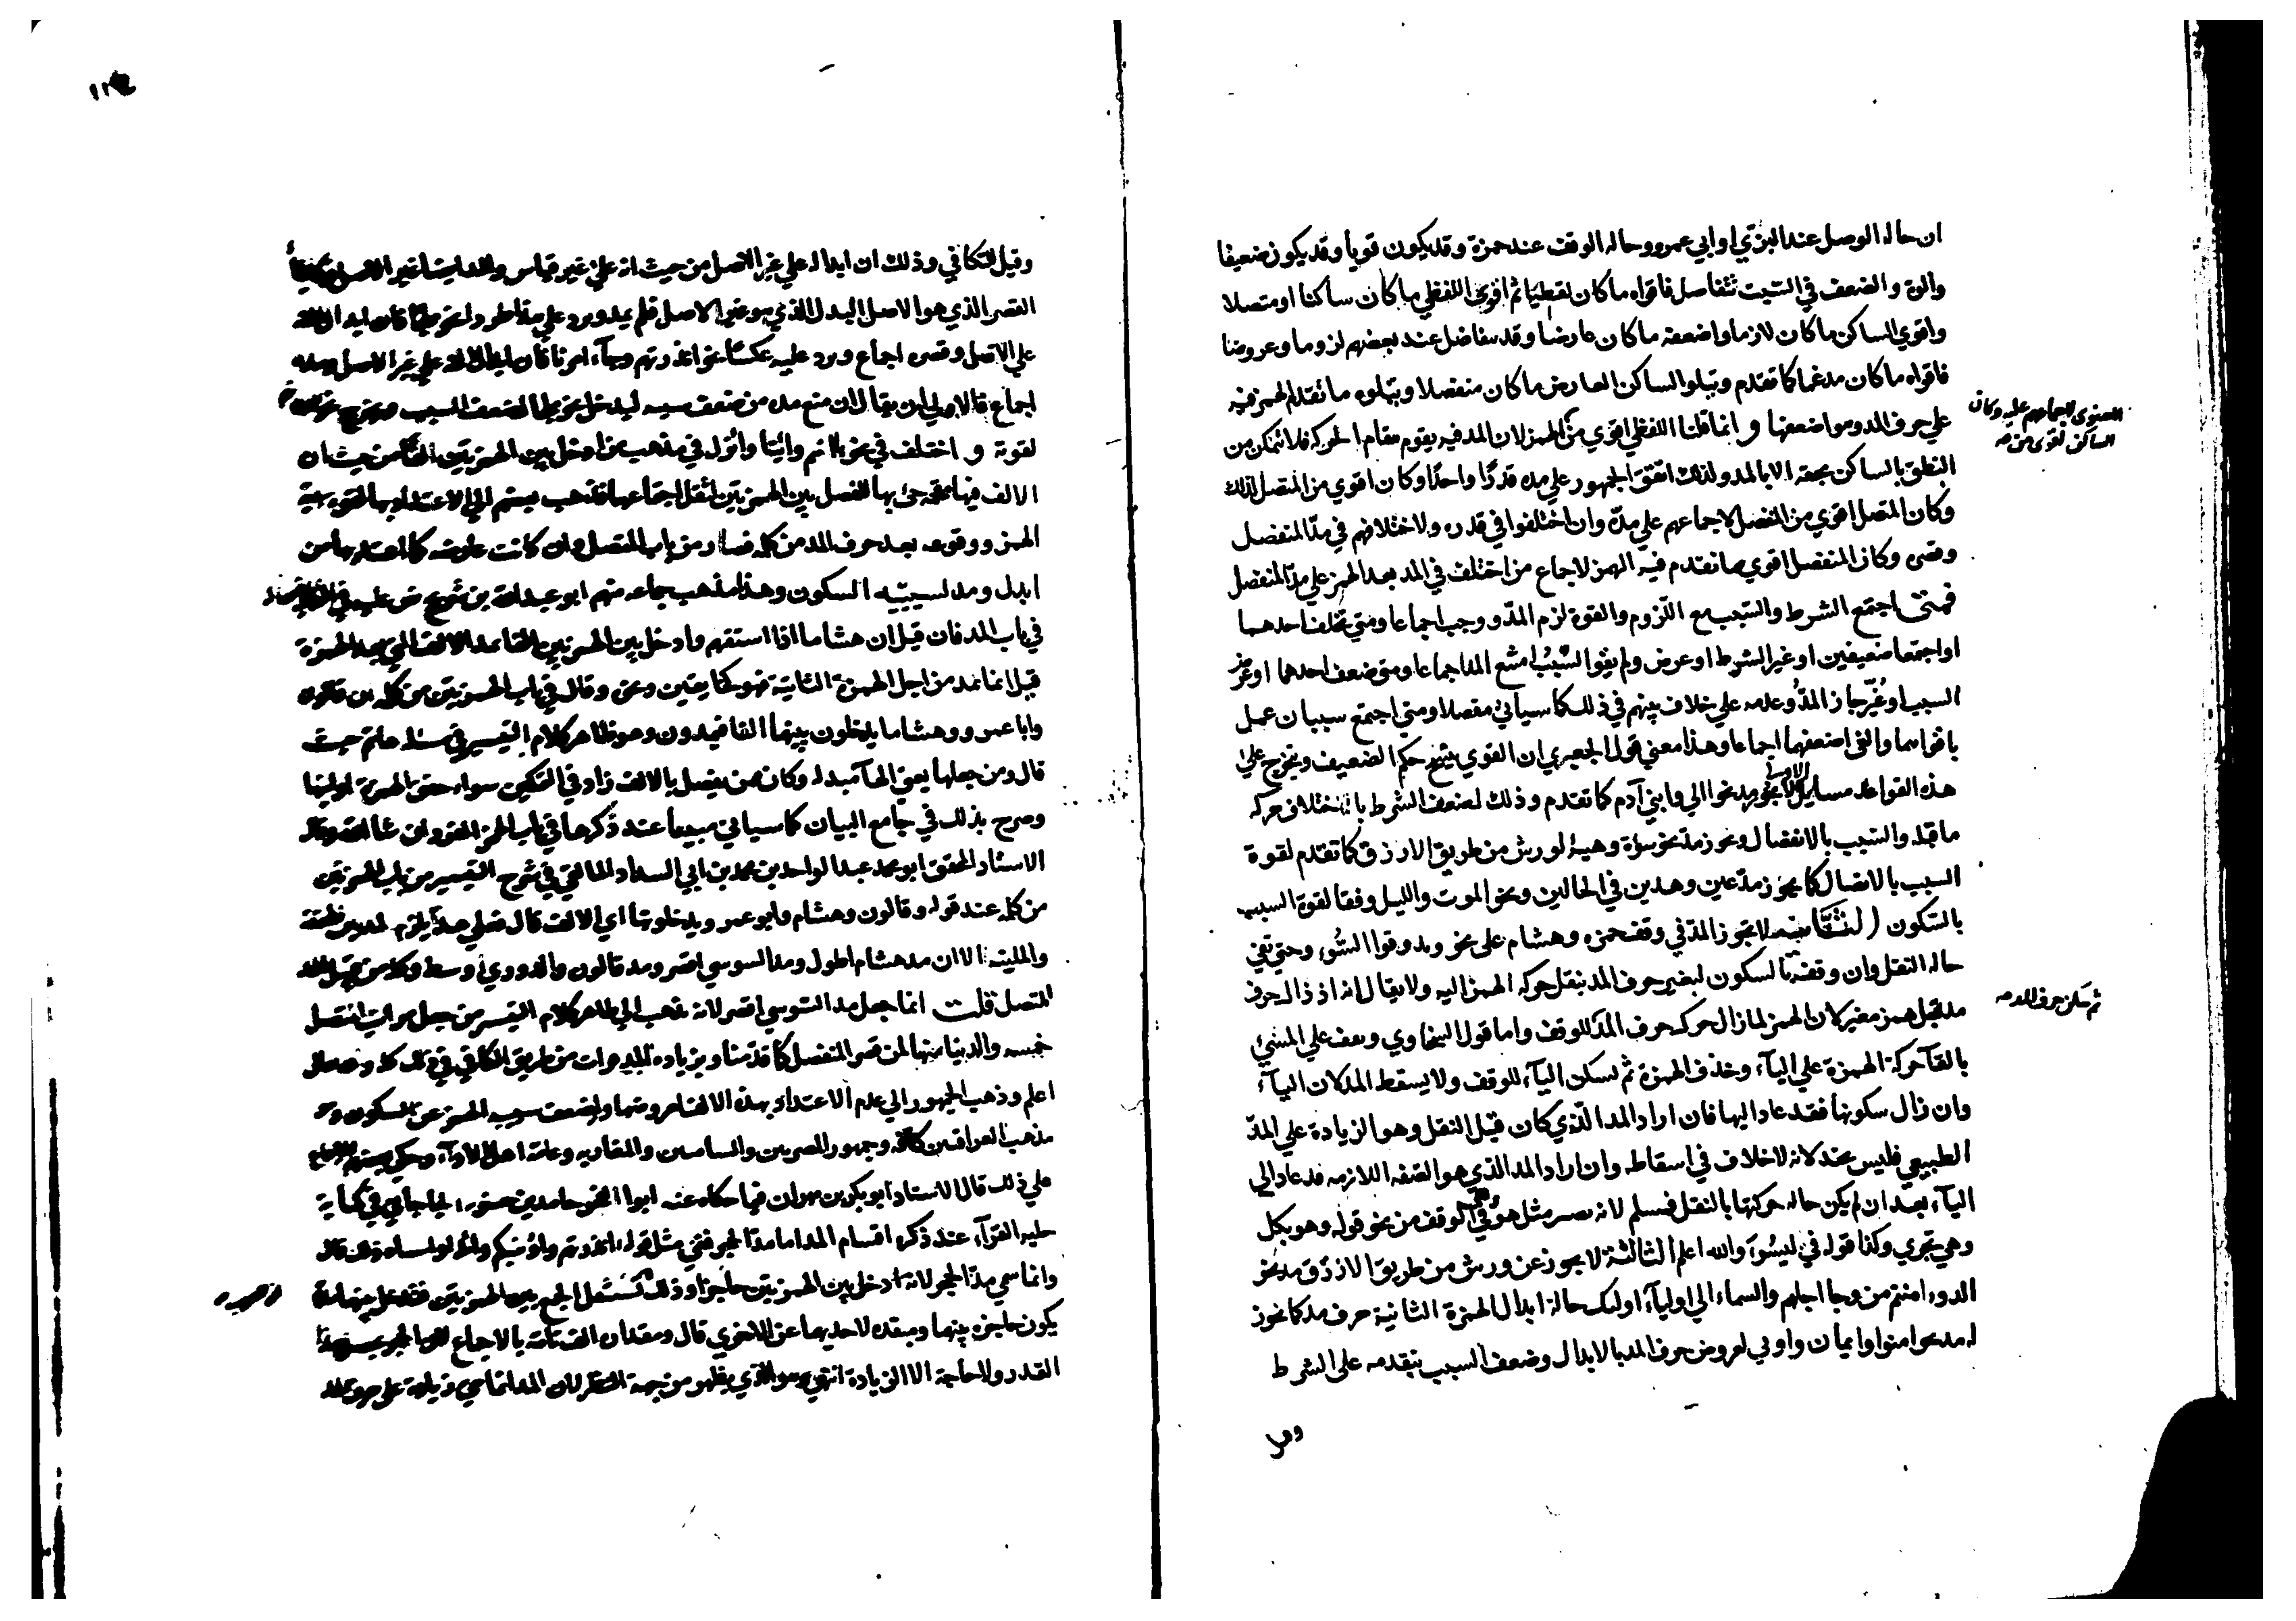 ان حاله الوصل عند البزي او ابي عمرو وحاله الوقف عند حمزة وقد يكون قويا وقد يكون ضعيفا
والقوة والضعف في السبب تتفاصل فاقواه ما كان لفظيا ثم اقوى اللفظي ما كان ساكنا او متصلا
واقوي الساكن ما كان لازما واضعفه ما كان عارضا وقد يتفاضل عند بعضهم لزوما وعروضا
فاقواه ما كان مدغما كما تقدم ويتلوا الساكن العارض ما كان منفصلا ويتلوه ما تقدم الهمز فيه
علي حرف المد وهو اضعفها وانما قلنا اللفظي اقوي من
المعنوي لاجماعهم عليه وكان
الساكن اقوى من
الهمز لان المد فيه يقوم مقام الحركة فلا يتمكن من
النطق بالساكن بحقه الا بالمد ولذلك اتفق الجمهور علي مده قدرا واحدا وكان اقوي من المتصل لذلك
وكان المتصل اقوي من المنفصل لاجماعهم علي مده وان اختلفوا في قدره ولاختلافهم في مد المنفصل
وقصره وكان المنفصل اقوي مما تقدم فيه الهمز لاجماع من اختلف في المد بعد الهمز علي مد المنفصل
فمتى اجتمع الشرط والسبب مع اللزوم والقوة لزم المد ووجب اجماعا ومتي تخلف احدهما
او اجتمعا ضعيفين او غير الشرط او عرض ولم يقو السبب امتنع المد اجماعا ومتى ضعف احدهما او عرض
السبب او غير جاز المد وعدمه علي خلاف بينهم في ذلك كما سياتي مفصلا ومتي اجتمع سببان عمل
باقواهما والغي اضعفهما اجماعا وهذا معني قول الجعبري ان القوي ينسخ حكم الضعيف ويتخرج علي
هذه القواعد مسايل الاولى لا يجوز مد نحو خلوا الي وابني آدم كما تقدم وذلك لضعف الشرط باختلاف حركه
ما قبله والسبب بالانفصال ويجوز مد نحو سوءة وهيئة لورش من طريق الازرق كما تقدم لقوة
السبب بالاتصال كما يجوز مد عين وهذين في الحالين ونحو الموت والليل وقفا لقوة السبب
بالسكون الثانية لا يجوز المد في وقف حمزه وهشام على نحو وتذوقوا السوء وحتى تفي
حاله النقل وان وقف بالسكون لتغير حرف المد بنقل حركه الهمز اليه ولا يقال انه اذ ذاك حرف
مد قبل همز مغير لان الهمز لما زال حرك حرف المد
ثم سكن حرف المد
للوقف واما قول السخاوي وتقف علي المسيء
بالقآ حركة الهمزة علي اليآء وحذف الهمزة ثم تسكن اليآء للوقف ولا يسقط المد لان اليآء
وان زال سكونها فقد عاد اليها فان اراد المد الذي كان قبل النقل وهو الزيادة علي المد
الطبيعي فليس بجيد لانه لا خلاف في اسقاطه وان اراد المد الذي هو الصفه اللازمه فقد عاد الي
اليآء بعد ان لم يكن حاله حركتها بالنقل فمسلم لانه يصير مثل هو وهي في الوقف من نحو قوله وهو بكل
وهي تجري وكذا قوله في ليسوآ والله اعلم الثالثة لا يجوز عن ورش من طريق الازرق مد نحو
الدوء امنتم من وجا اجلهم والسماء الي اوليآء اولئك حالة ابدال الهمزة الثانية حرف مد كما يجوز
له مد نحو امنوا وايمان واوتي لعروض حرف المد بالابدال وضعف السبب بتقدمه على الشرط
وقيل للتكافي وذلك ان ابداله علي غير الاصل من حيث انه علي غير قياس والمد ايضا غير الاصل
القصر الذي هو الاصل البدل الذي هو غير الاصل فلم يمد ويرد علي هذا طردا نحو ملجا فان ابداله
علي الاصل وقصره اجماع ويرد عليه عكسا نحو ءانذرتهم وجآء امرنا فان ابدال الفه علي غير الاصل ومده
اجماع فالاولي ان يقال ان منع مده من ضعف سببه ليدخل نحو ملجا لضعف السبب ويخرج نحو
لقوته واختلف في نحو ءانتم وائنا وائزل في مذهب من ادخل بين الهمزتين الفا من حيث ان
الالف فيها مقحمة جئ بها للفصل بين الهمزتين لثقل اجتماعهما فذهب بعضهم الي الاعتداد بها لقوة سببية
الهمز ووقوعه بعد حرف المد من كلمه فصار من باب المتصل وان كانت عارضه كما اعتد بها من
ابدل ومد لسببيه السكون وهذا مذهب جماعه منهم ابو عبد الله بن شريح نص عليه في الكافي
في باب المد فان قيل ان هشاما اذا استفهم وادخل بين الهمزتين الفا يمد الالف التي بعد الهمزة
قيل انما يمد من اجل الهمزة الثانية فهو كخايفين ونحوه وقال في باب الهمزتين من كلمه ان قالون
وابا عمرو وهشاما يدخلون بينهما الفا فيمدون وهو ظاهر كلام التيسير في مسئله هانتم حيث
قال ومن جعلها يعني الها مبدله وكان ممن يفصل بالالف زاد في التمكين سواء حقق الهمزة او لينها
وصرح بذلك في جامع البيان كما سياتي مبينا عند ذكرها في باب الهمز المفرد ان شا الله وقال
الاستاد المحقق ابو محمد عبد الواحد بن محمد بن ابي السداد المالقي في شرح التيسير من باب الهمزتين
من كلمه عند قوله وقالون وهشام وابو عمرو ويدخلونها اي الالف قال فعلي هذا يلزم المد بين المحققة
والملينه الا ان مد هشام اطول ومد السوسي اقصر ومد قالون والدوري اوسط وكله من قبيل المد
المتصل قلت انما جعل مد السوسي اقصر لانه يذهب الي ظاهر كلام التيسير من جعل مراتب المتصل
خمسه والدنيا منها لمن قصر المنفصل كما قدمنا وبزياده المد قرات من طريق الكافي في ذلك كله والله
اعلم وذهب الجمهور الي عدم الاعتداد بهذه الالف لعروضها ولضعف سببيه الهمز عن السكون وهو
مذهب العراقيين كافه وجمهور المصريين والشاميين والمغاربه وعامة اهل الادآء وحكى بعضهم الاجماع
علي ذلك قال الاستاد ابو بكر بن مهران فيما حكاه عنه ابوا الفخر حامد بن حسنويه الجاجاني في كتابه
حليه القرآء عند ذكره اقسام المد اما مد الحجز ففي مثل قوله ءانذرتهم واؤنبئكم وائذا واشباه ذلك قال
وانما سمي مد الحجز لانه ادخل بين الهمزتين حاجزا وذلك ان
العرب
تستثقل الجمع بين الهمزتين فتدخل بينهما مدة
تكون حاجزه بينهما ومبعده لاحديهما عن الاخري قال ومقداره الف تامة بالاجماع لان الحجز يحصل بهذا
القدر ولا حاجة الا الزيادة انتهى وهو الذي يظهر من جهة النظر لان المد انما جي به زيادة على حرف المد
وقيل